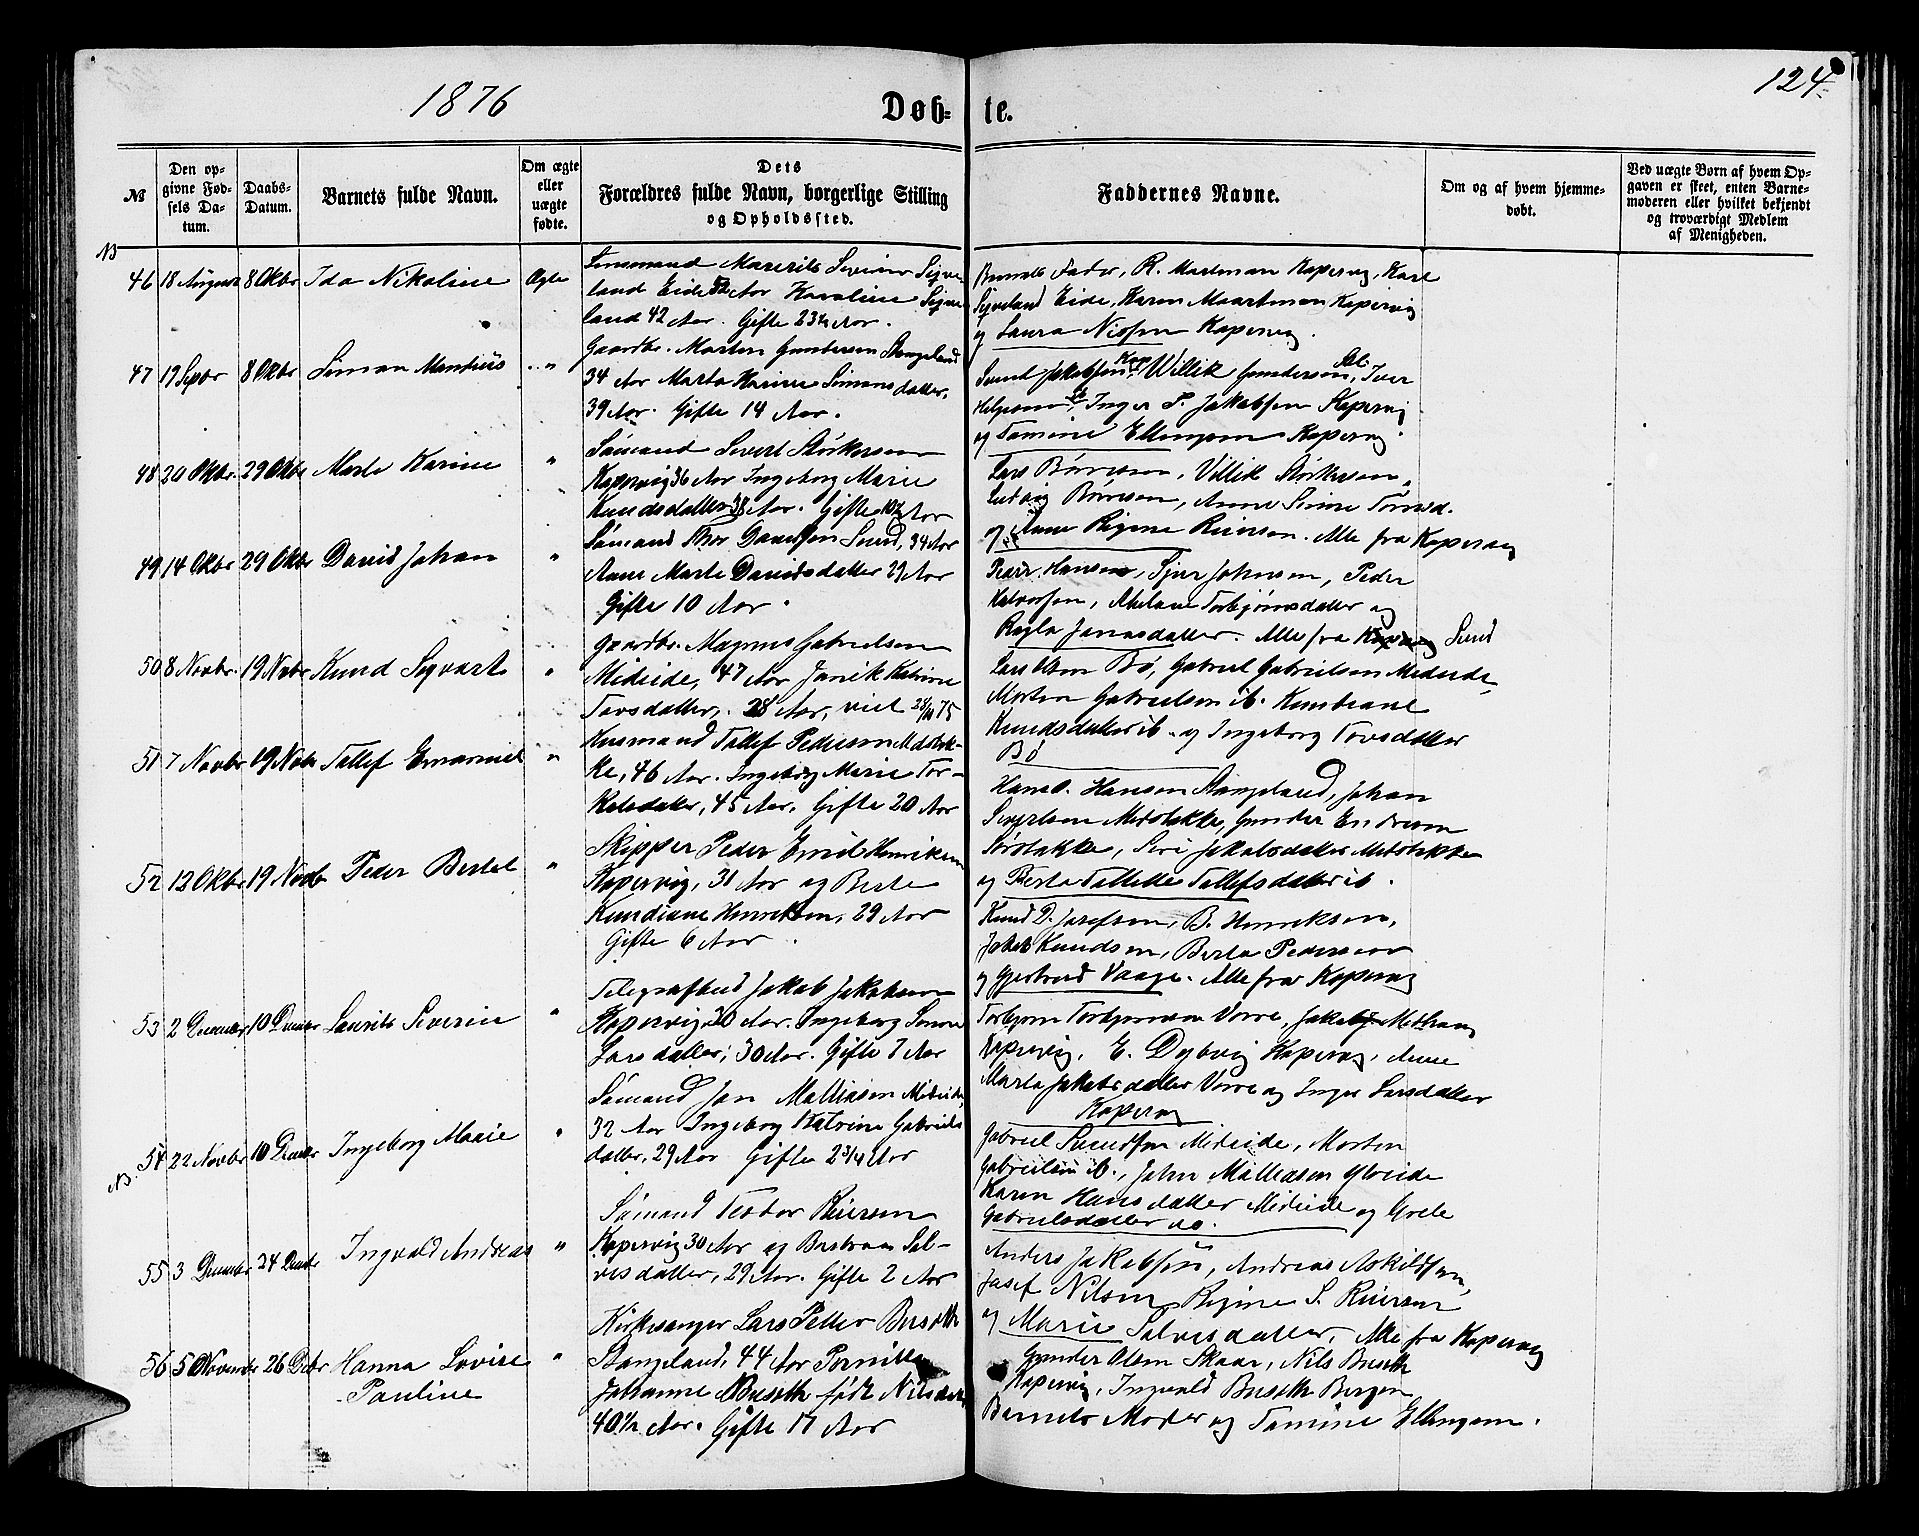 1876
Døb-
te.
124.
№
Den op-
givne Fød-
sels Da-
tum.
Daabs-
Datum.
Barnets fulde Navn.
Om ægte
eller
uægte
fødte.
Dets
Forældres fulde Navn, borgerlige Stilling
og Opholdssted.
Faddernes Navne.
Om og af hvem hjemme-
døbt.
Ved uægte Børn af hvem Op-
gaven er skeet, enten Barne-
moderen eller hvilket bekjendt
og troværdigt Medlem
af Menigheden.
46 18 August 8 Oktbr Ida Nikoline Ægte
Severin
land Eide Aar Karoline
land 42 Aar. Gifte 23½ Aar.
Barnets Fader, R. Martman Kopervig, Karl
Eide, Karen Maartman Kopervig
og Laura Nissen Kopervig.
47 19 Septbr 8 Oktbr Simon Mandius „ „
Gaardbr. Morten Gundersen Stangeland
34 Aar Marta Karine Simonsdatter,
39 Aar. Gifte 14 Aar.
Svend Jakobsen Kop. Willik Gundersen Stl. Iver
Helgesen St. Inger P. Jakobsen Kopervig
og Tomine Ellingsen Kopervig.
48 20 Oktbr. 29 Oktbr Marte Karine „
Sømand Sivert Størkersen
Kopervig 36 Aar Ingeborg Marie
Knudsdatter 38 Aar. Gifte Aar
Lars Børresen, Villik Størkersen,
Ludvig Børresen, Anne Sirine
og Anne Regine Reiersen. Alle fra Kopervig
49 14 Oktbr 29 Oktbr David Johan „
Sømand Thor Davidsen Sund, 34 Aar
Anne Marte Davidsdatter 29 Aar
Gifte 10 Aar.
Peder Hansen, Sjur Johnsen, Peder
Halvorsen, Torbjørnsdatter og
Ragla Jonasdatter. Alle fra Sund
50 8 Novbr. 19 Novbr Knud Sigvart „
Gaardbr. Magnus Gabrielsen
Mideide, 47 Aar Janik Katrine
Tovsdatter, 28 Aar, viet 28/10 75
Lars Olsen Bø, Gabriel Gabrielsen Mideide,
Morten Gabrielsen ib.
Knudsdatter ib. og Ingeborg Tovsdatter
Bø
51 7 Novbr 19 Novbr Tallef Emanuel „
Husmand Tallef Pedersen Midstok-
ke, 46 Aar. Ingeborg Marie Tor-
kelsdatter, 45 Aar. Gifte 20 Aar
Hans O. Hansen Stangeland, Johan
Sivertsen Midstokke, Gunder Endresen
Sørstokke, Siri Jakobsdatter Midstokke
og Berta Tallette Tallefsdatter ib.
52 12 Oktbr 19 Novbr Peder Bertel „
Skipper Peder Emil Henriksen
Kopervig, 31 Aar og Berte
Kundiane Henriksen, 29 Aar
Gifte 6 Aar.
Knud D. Josefsen, B. Henriksen,
Jakob Knudsen, Berta Pedersen
og Gjertrud Vaage. Alle fra Kopervig
53 2 December 10 December Laurits Severin „
Telegrafbud Jakob Jakobsen
Kopervig 30 Aar. Ingeborg Simone
Larsdatter, 30 Aar. Gifte 7 Aar
Torbjørn Torbjørnsen Vorre, Jakob
Kopervig, E. Dybvig Kopervig, Anne
Marta Jakobsdatter Vorre og Inger Larsdatter
Kopervig
54 22 Novbr 10 Decbr Ingeborg Marie „
Sømand Jan Matiasen Mideide,
32 Aar Ingeborg Katrine Gabriels
datter, 29 Aar Gifte 2 3/4 Aar
Gabriel Svendsen Mideide, Morten
Gabrielsen ib., John Matiasen
Karen Hansdatter Mideide og Grete
Gabrielsdatter do.
55 3 December 24 Decbr Ingvald Andreas „
Sømand Reiersen
Kopervig 30 Aar og Sal-
vesdatter, 29 Aar. Gifte 2 Aar
Anders Jakobsen, Andreas Askildsen,
Josef Nilsen Regine S. Reiersen
og Marie Salvesdatter, Alle fra Kopervig
56 5 November 26 Decbr Hanna Lovise „
Pauline
Kirkesanger Lars Petter Buseth
Stangeland, 44 Aar Pernille
Johanne Buseth født Nilsdatter
40½ Aar. Gifte 17 Aar
Gunder Olsen Skaar, Nils Buseth
Kopervig, Ingvald Buseth Bergen
Barnets Moder og Tomine Ellingsen.